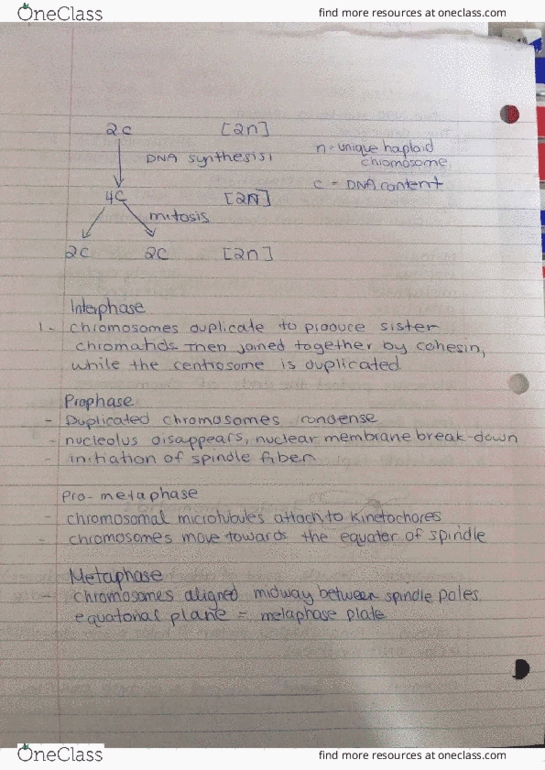 OneClass find more resources at oneclass.com
2c [2n]
DNA synthesis
n - unique haploid
chromosome
c = DNA content
4C [2N]
mitosis
2C 2C [2n]
Interphase
1. - chromosomes duplicate to produce sister
chromatids then joined together by cohesin,
while the centrosome is duplicated
Prophase
- Duplicated chromosomes condense
- nucleolus disappears, nuclear membrane break-down
- initiation of spindle fiber
Pro-metaphase
- chromosomal microtubules attach to kinetochores
- chromosomes move towards the equater of spindle
Metaphase
- chromosomes aligned midway between spindle poles,
equatorial plane = metaphase plate
OneClass find more resources at oneclass.com